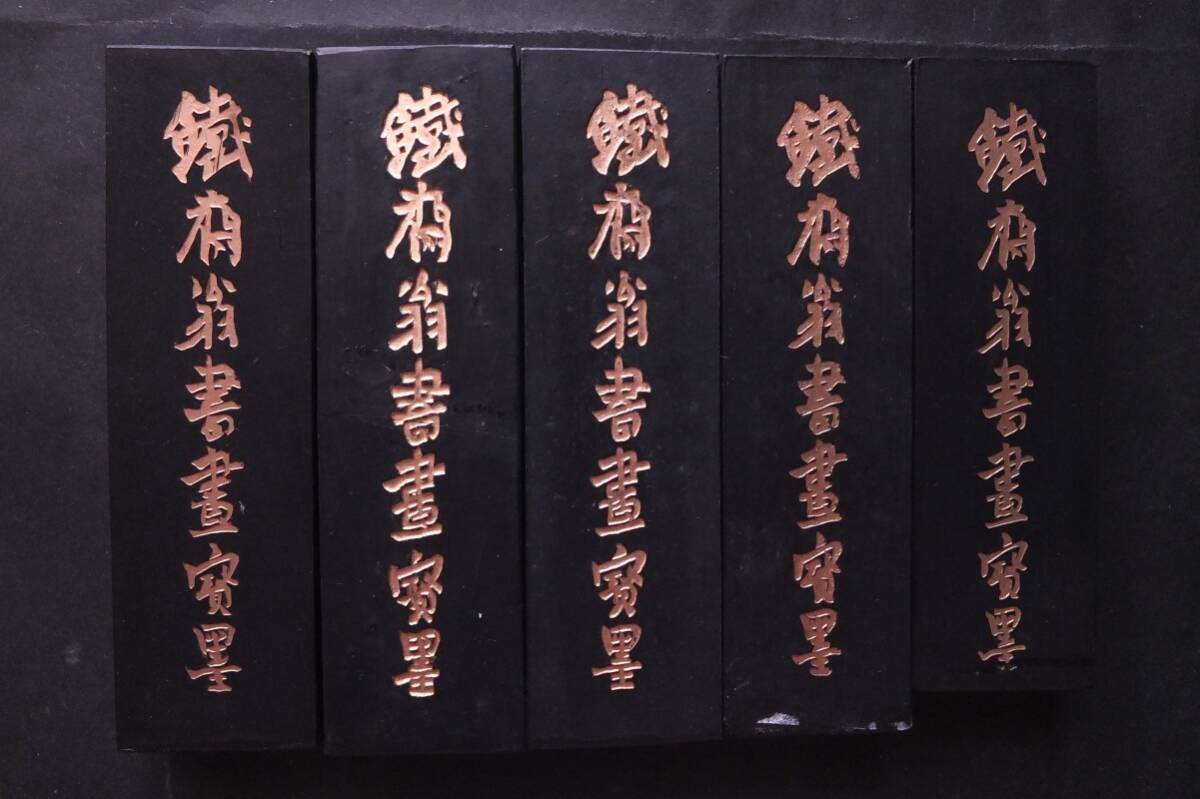 鐵齋翁書畫寶墨
鐵齋翁書畫寶墨
鐵齋翁書畫寶墨
鐵齋翁書畫寶墨
鐵齋翁書畫寶墨